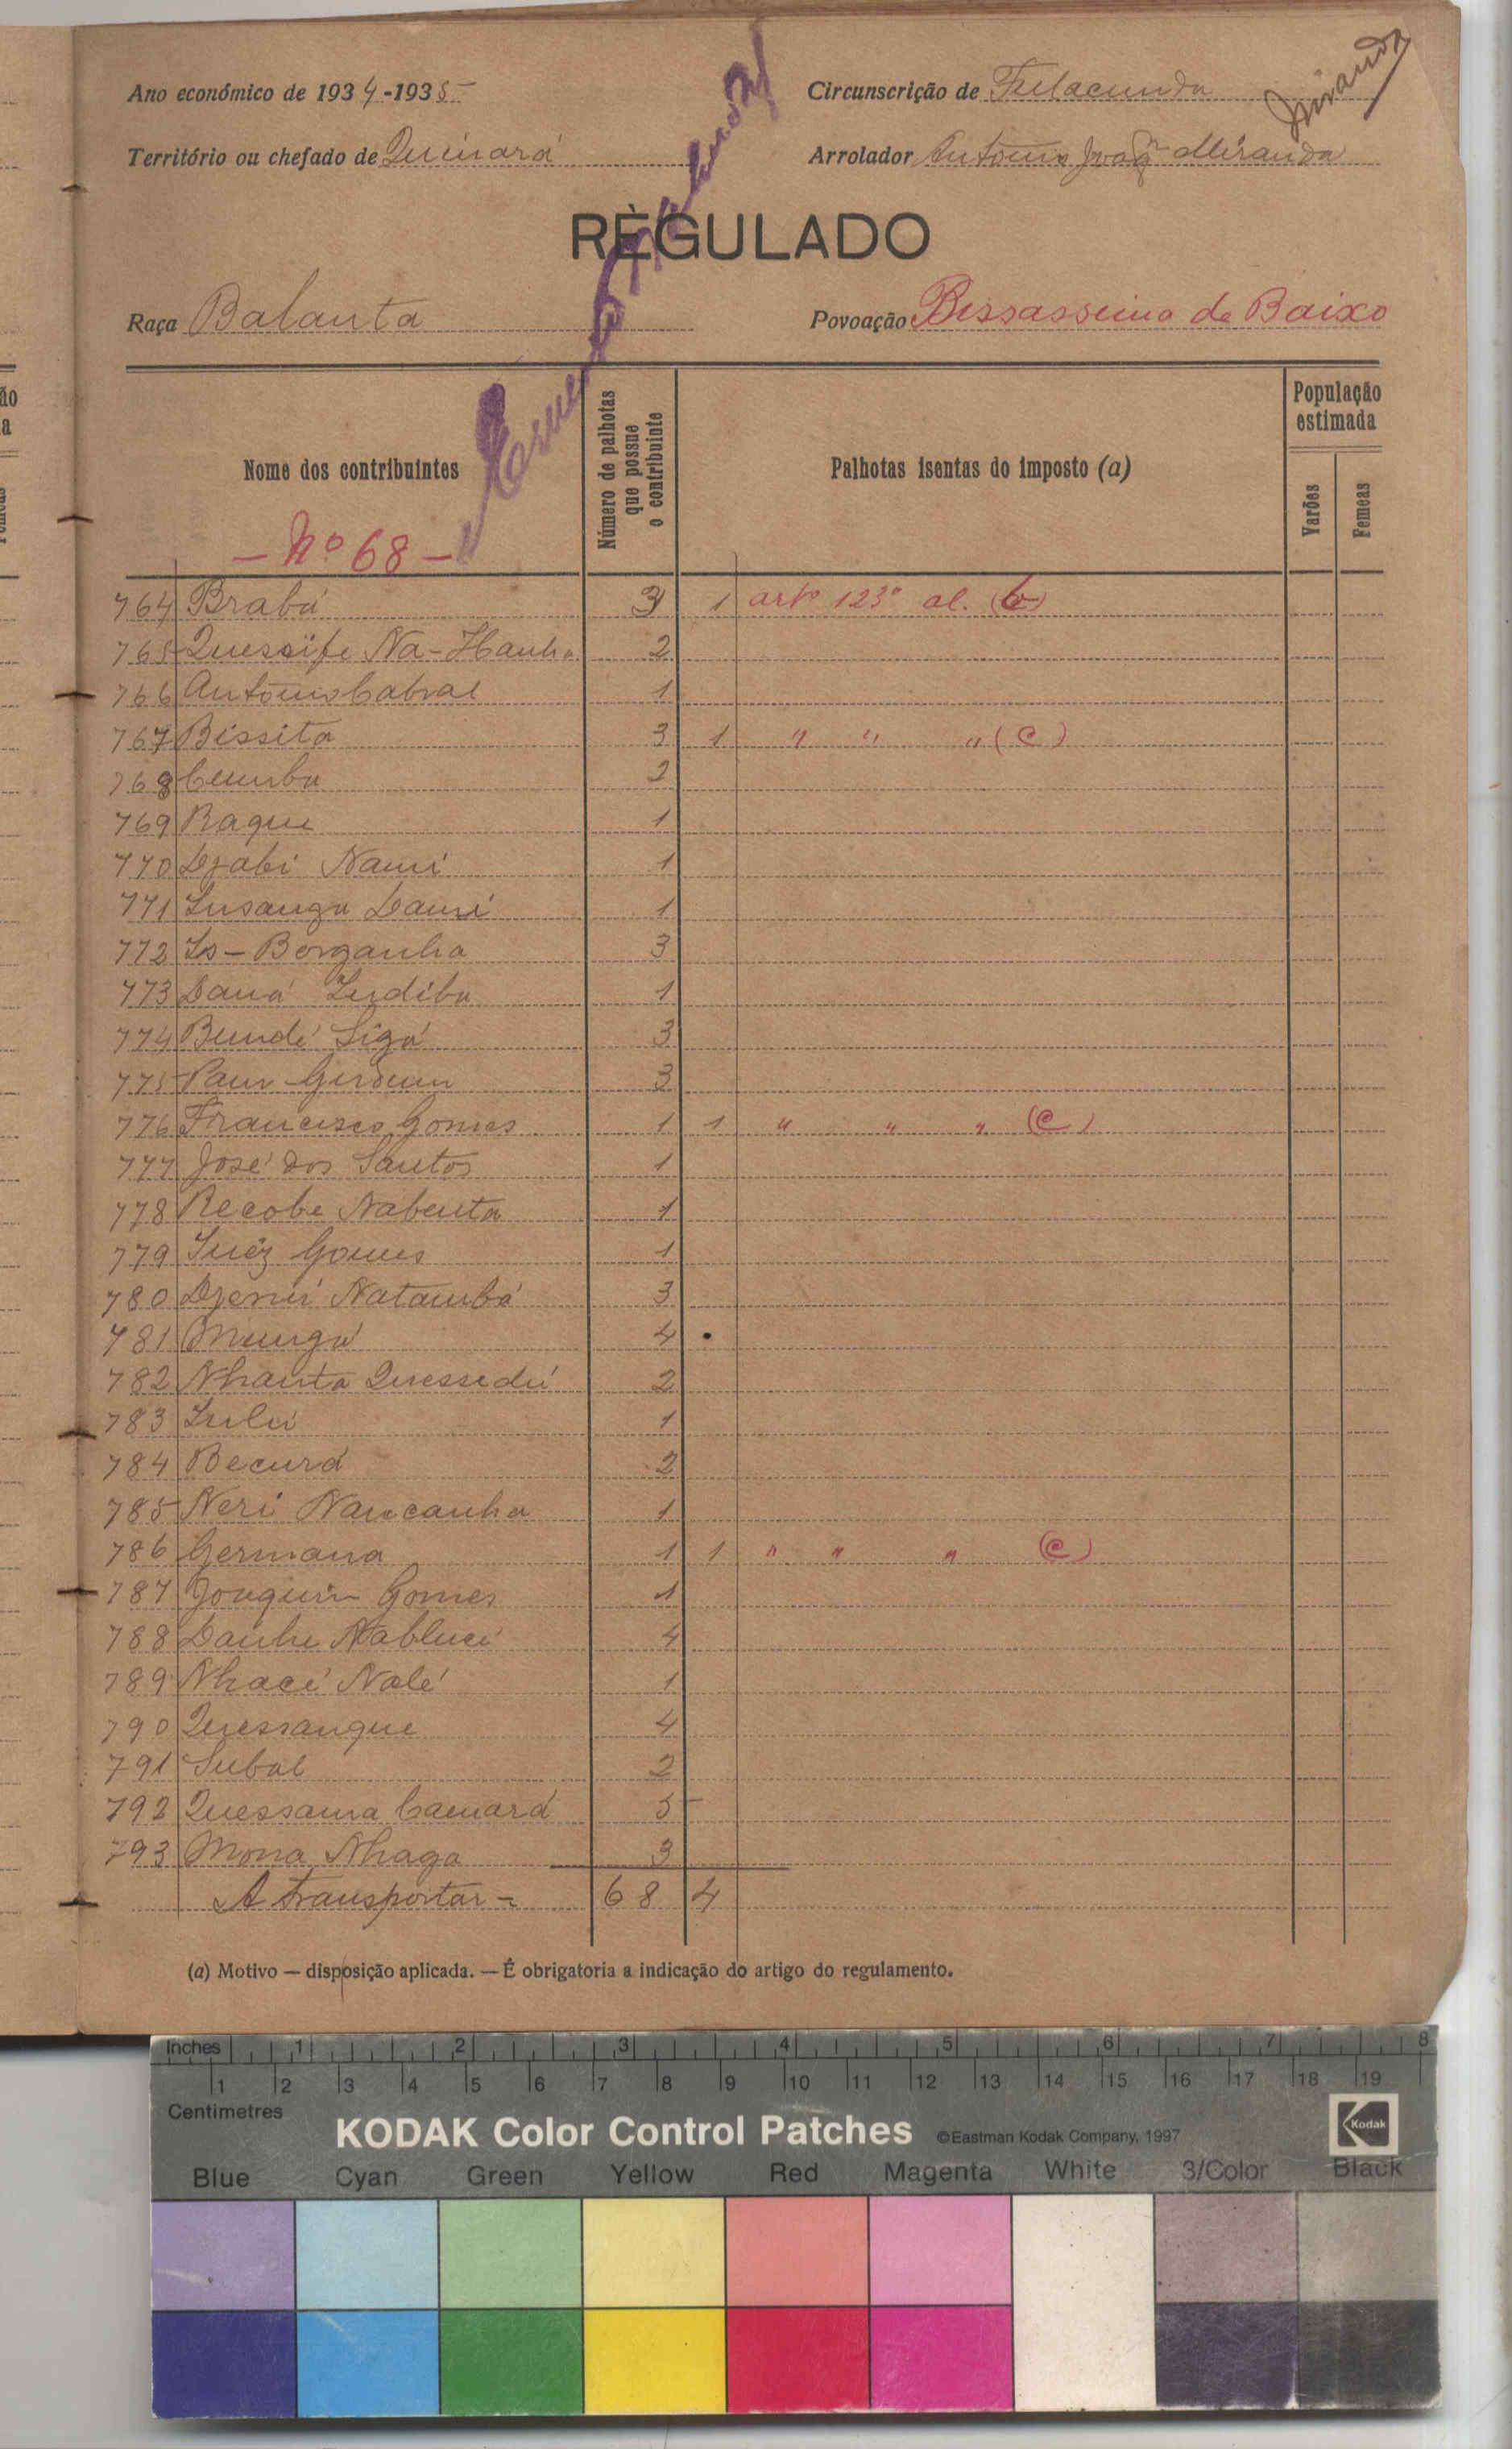 Ano económico de 1934-1935
Circunscrição de Fulacunda
Miranda
Território ou chefado de Quinará
Arrolador António Joaqm Miranda
RÈGULADO
Raça Balanta
Povoação Bissassema de Baixo
Nome dos contribuintes
Número de palhotas que possue o contribuinte
Palhotas isentas do imposto (a)
População estimada
Varões
Femeas
- Nº 68 -
764 Brabá 3 1 artº 123º al. (b)
765 Quessife Na-Hanha 2
766 António Cabral 1
767 Bissita 3 1 " " " (c)
768 Cumba 2
769 Raque 1
770 Dzabi Nami 1
771 Insanga Dami 1
772 Is-Borganha 3
773 Daná Indiba 1
774 Bundé Sigá 3
775 3
776 Francisco Gomes 1 1 " " " (c)
777 José dos Santos 1
778 Recobe Nabenta 1
779 Inêz Gomes 1
780 Dzenú Natambá 3
781 Mungú 4
782 Nhanta Quessedú 2
783 Lulú 1
784 Becurá 2
785 Neri Nancanha 1
786 Germana 1 1 " " " (c)
787 Joaquim Gomes 1
788 Danhe 4
789 Nhacé Nalé 1
790 Quessangue 4
791 Subal 2
792 Quessama Camará 5
793 Mona Nhaga 3
A transportar = 68 4
(a) Motivo — disposição aplicada. — É obrigatoria a indicação do artigo do regulamento.
Inches 1 2 3 4 5 6 7 8
1 2 3 4 5 6 7 8 9 10 11 12 13 14 15 16 17 18 19
Centimetres
KODAK Color Control Patches ©Eastman Kodak Company, 1997 Kodak
Blue Cyan Green Yellow Red Magenta White 3/Color Black